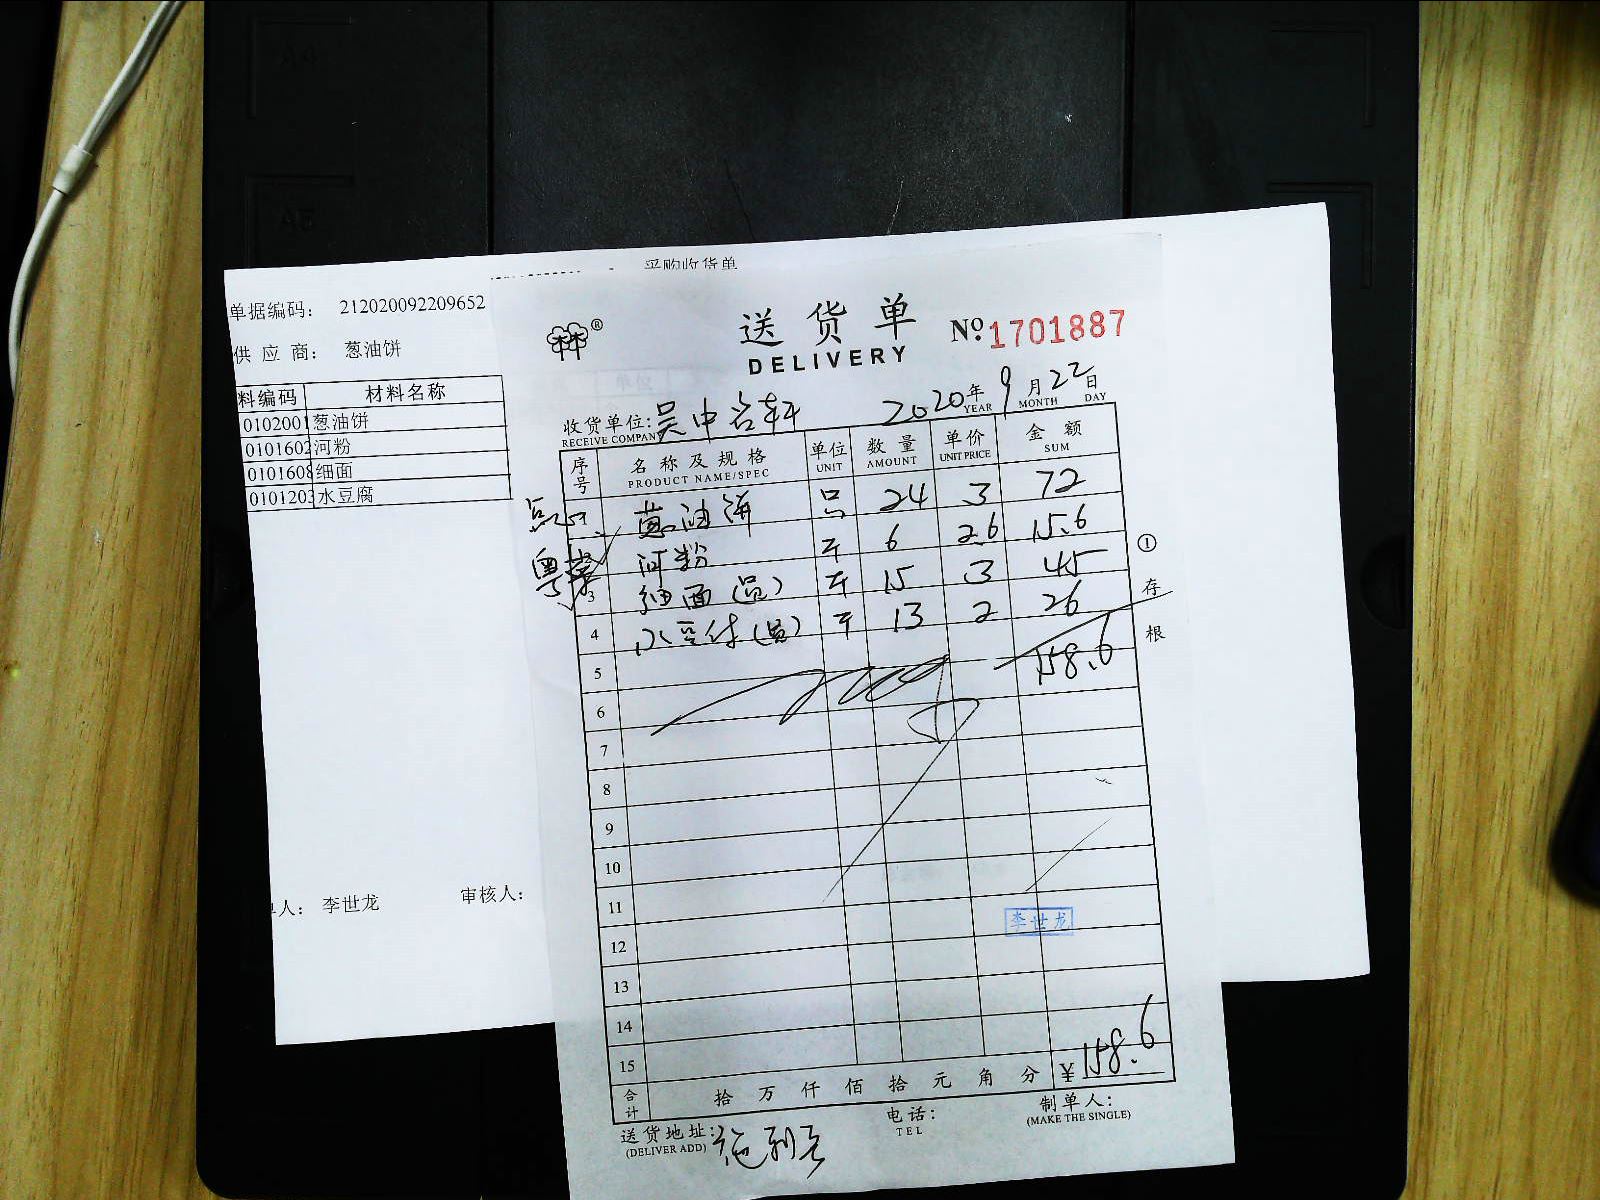 采购收货单
单据编码: 212020092209652
供应商: 葱油饼
料编码 材料名称
0102001 葱油饼
0101602 河粉
0101608 细面
0101203 水豆腐
单人: 李世龙 审核人:
送货单
DELIVERY
№ 1701887
2020年9月22日
YEAR MONTH DAY
收货单位: 吴中名轩
RECEIVE COMPANY
序号 名称及规格 单位 数量 单价 金额
PRODUCT NAME/SPEC UNIT AMOUNT UNIT PRICE SUM
点心 葱油饼 只 24 3 72
粤菜 河粉 斤 6 2.6 15.6
3 细面(员) 斤 15 3 45
4 水豆付(员) 斤 13 2 26
5 158.6
6
7
8
9
10
11
李世龙
12
13
14
15
合计 拾万仟佰拾元角分 ¥158.6
送货地址:
(DELIVER ADD)
电话:
TEL
制单人:
(MAKE THE SINGLE)
① 存根